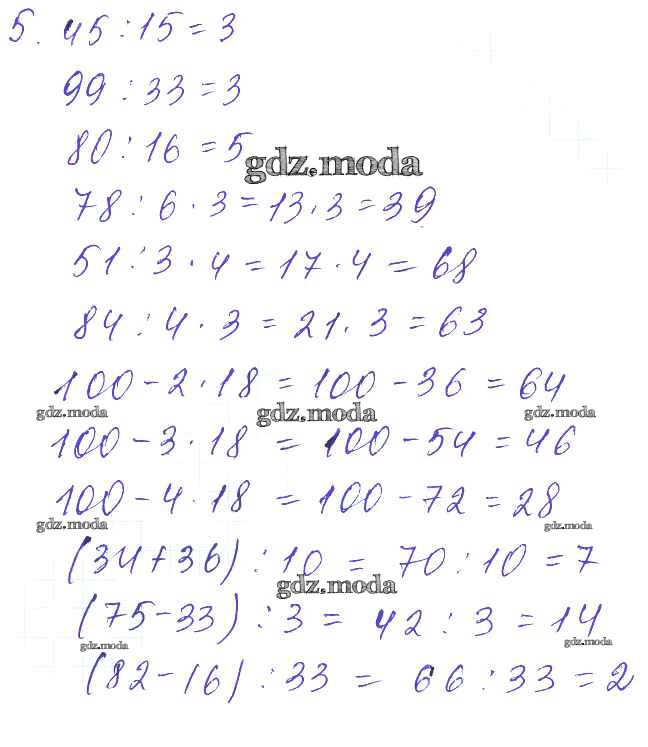 5. 45 : 15 = 3
99 : 33 = 3
80 : 16 = 5
gdz.moda
78 : 6 · 3 = 13 · 3 = 39
51 : 3 · 4 = 17 · 4 = 68
84 : 4 · 3 = 21 · 3 = 63
100 - 2 · 18 = 100 - 36 = 64
gdz.moda gdz.moda gdz.moda
100 - 3 · 18 = 100 - 54 = 46
100 - 4 · 18 = 100 - 72 = 28
gdz.moda gdz.moda
(34 + 36) : 10 = 70 : 10 = 7
gdz.moda
(75 - 33) : 3 = 42 : 3 = 14
gdz.moda gdz.moda
(82 - 16) : 33 = 66 : 33 = 2